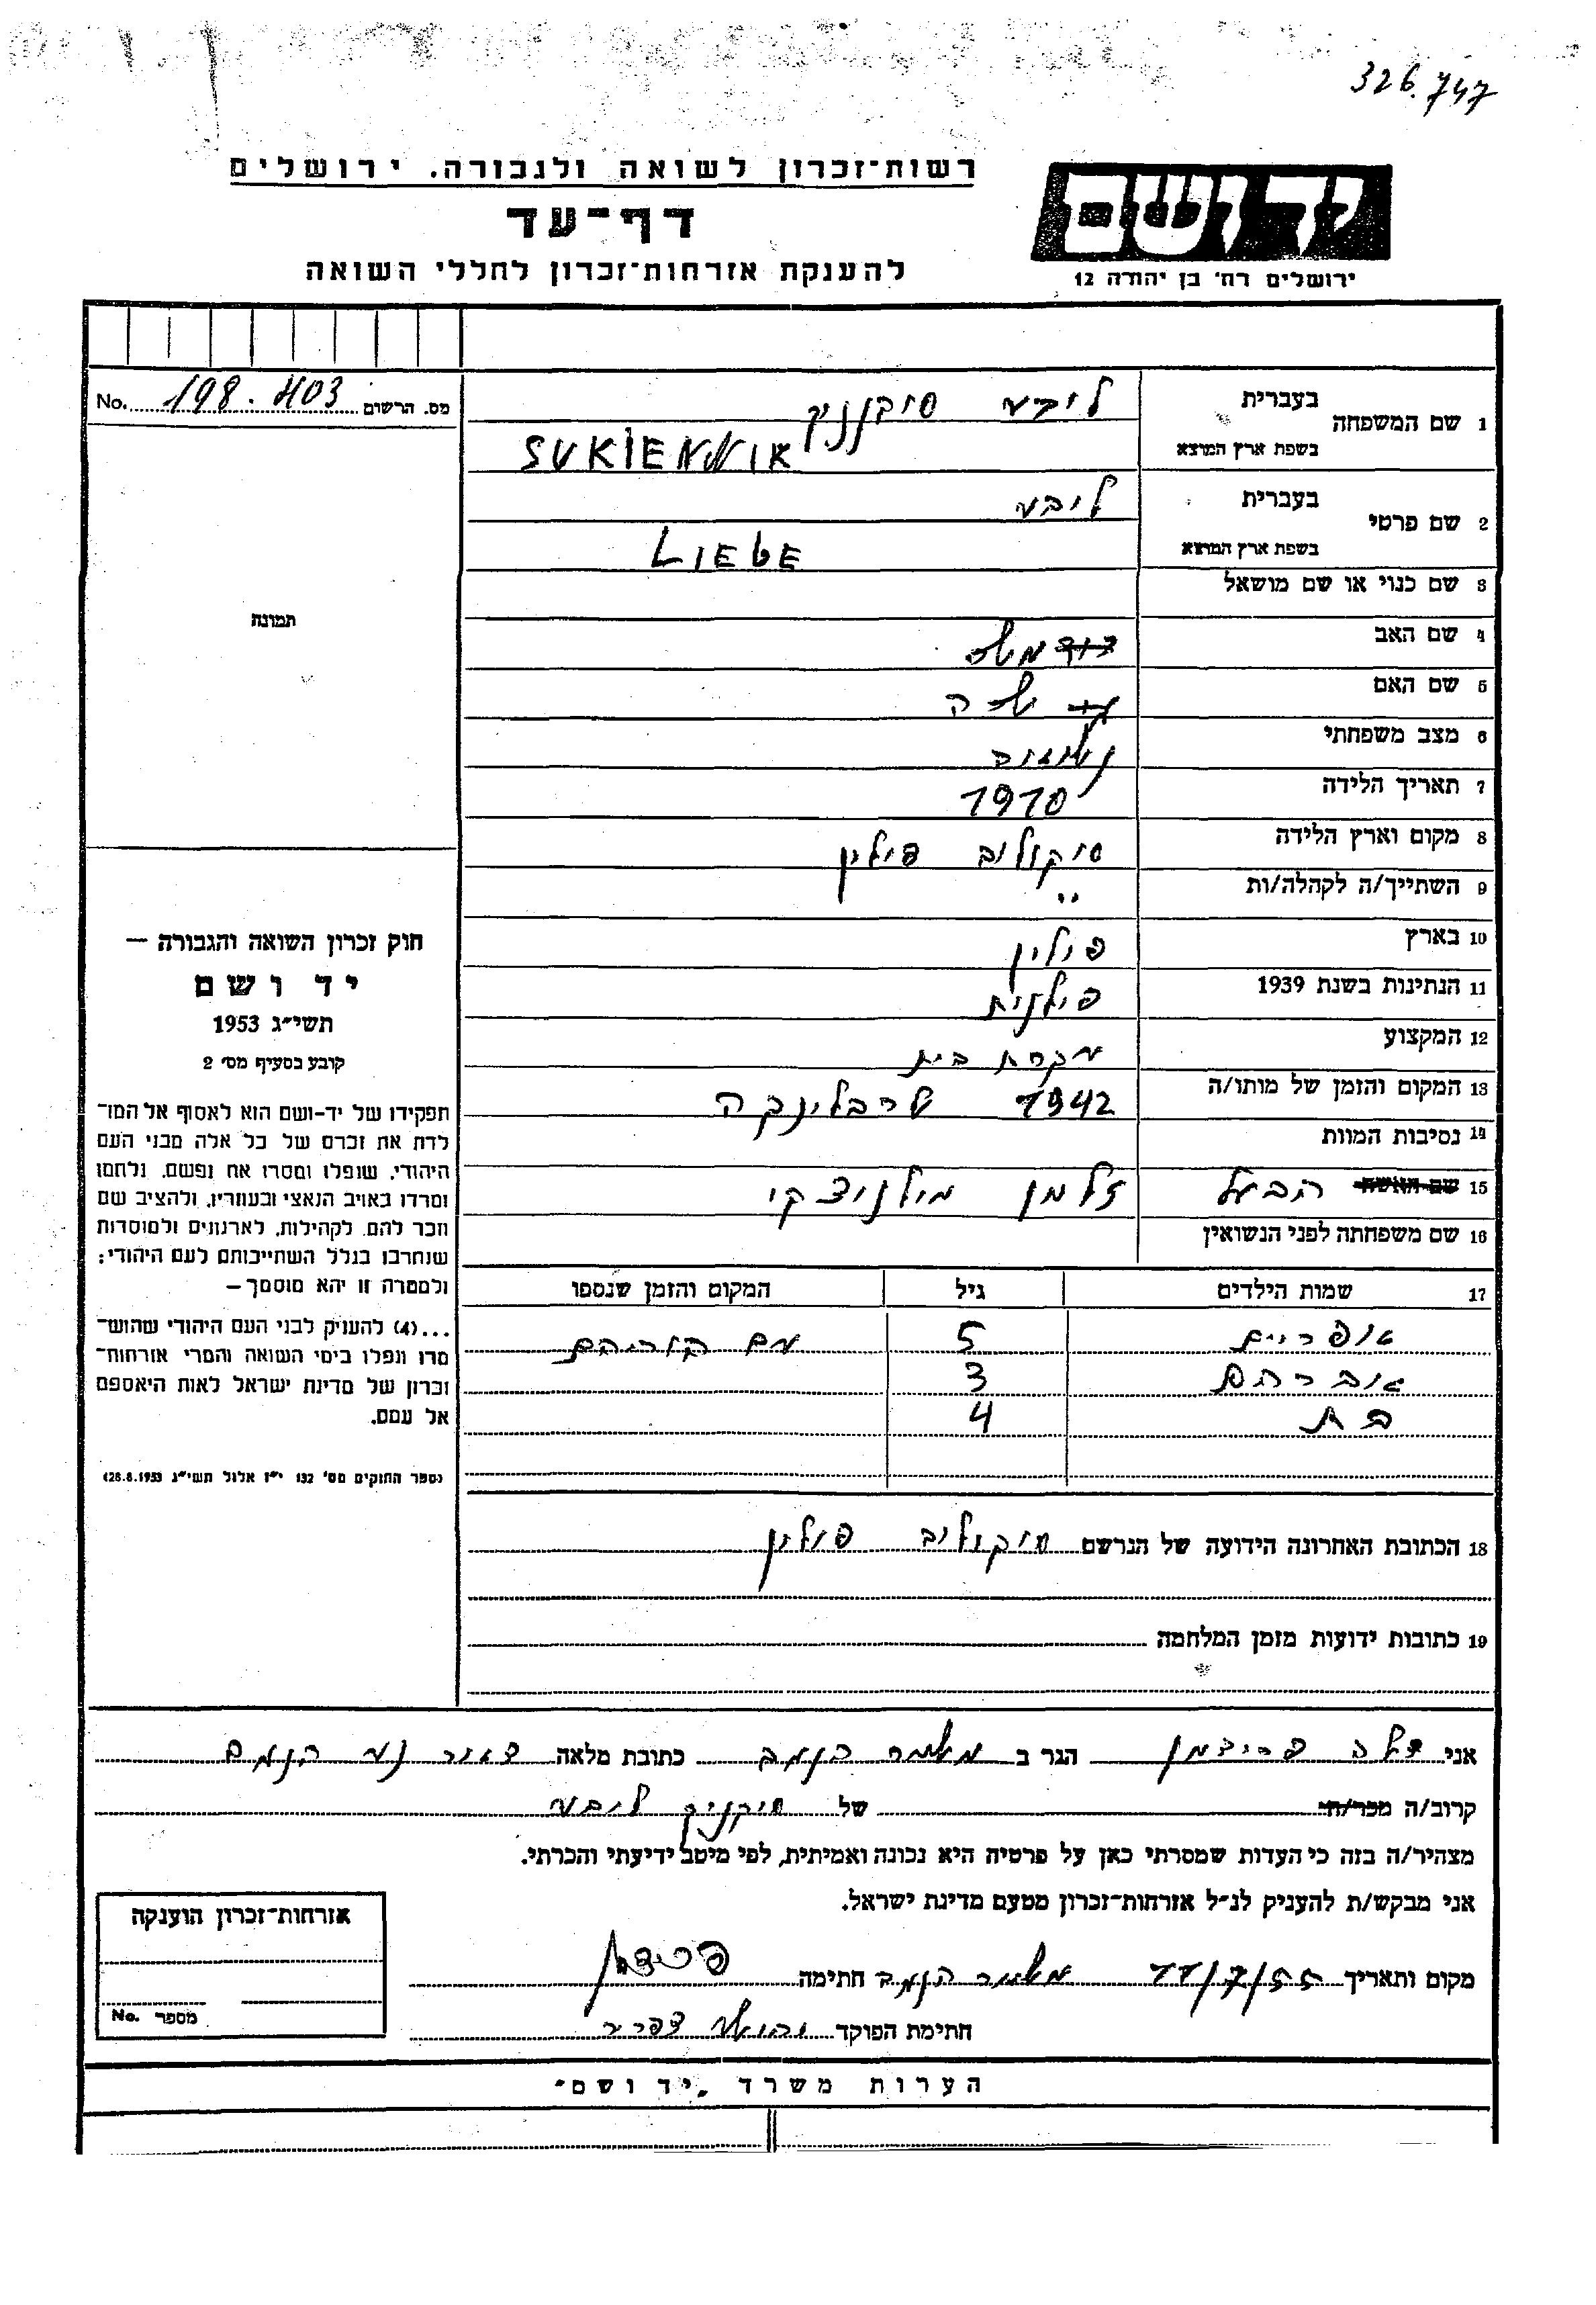 326.747
רשות־זכרון לשואה ולגבורה. ירושלים
יד ושם
דף־עד
להענקת אזרחות־זכרון לחללי השואה
ירושלים רח׳ בן יהודה 12
מס. הרשום 198.403 No.
1 שם המשפחה בעברית ליבע סוקניק
בשפת ארץ המוצא SUKIENNIK
2 שם פרטי בעברית ליבע
בשפת ארץ המוצא LIEBE
3 שם כנוי או שם מושאל
4 שם האב משה
5 שם האם
6 מצב משפחתי נשואה
7 תאריך הלידה 1910
8 מקום וארץ הלידה סוקולוב פולין
9 השתייך/ה לקהלה/ות "
10 בארץ פולין
11 הנתינות בשנת 1939 פולנית
12 המקצוע עקרת בית
13 המקום והזמן של מותו/ה 1942 טרבלינקה
14 נסיבות המוות
15 שם האשה הבעל זלמן
16 שם משפחתה לפני הנשואין
17 שמות הילדים גיל המקום והזמן שנספו
אפרים 5 עם הוריהם
אברהם 3
בת 4
18 הכתובת האחרונה הידועה של הנרשם סוקולוב פולין
19 כתובות ידועות מזמן המלחמה
תמונה
חוק זכרון השואה והגבורה —
יד ושם
תשי״ג 1953
קובע בסעיף מס׳ 2
תפקידו של יד-ושם הוא לאסוף אל המו־
לדת את זכרם של כל אלה מבני העם
היהודי, שנפלו ומסרו את נפשם, נלחמו
ומרדו באויב הנאצי ובעוזריו, ולהציב שם
וזכר להם, לקהילות, לארגונים ולמוסדות
שנחרבו בגלל השתייכותם לעם היהודי;
ולמטרה זו יהא מוסמך —
...(4) להעניק לבני העם היהודי שהוש־
מדו ונפלו בימי השואה והמרי אזרחות־
זכרון של מדינת ישראל לאות היאספם
אל עמם.
(ספר החוקים מס׳ 132 י״ז אלול תשי״ג 28.8.1953)
אני פרידמן הגר ב כתובת מלאה דאר נע
קרוב/ה מכר/ה של סוקניק ליבע
מצהיר/ה בזה כי העדות שמסרתי כאן על פרטיה היא נכונה ואמיתית, לפי מיטב ידיעתי והכרתי.
אני מבקש/ת להעניק לנ״ל אזרחות־זכרון מטעם מדינת ישראל.
מקום ותאריך חתימה
חתימת הפוקד
אזרחות־זכרון הוענקה
מספר No.
הערות משרד „יד ושם״